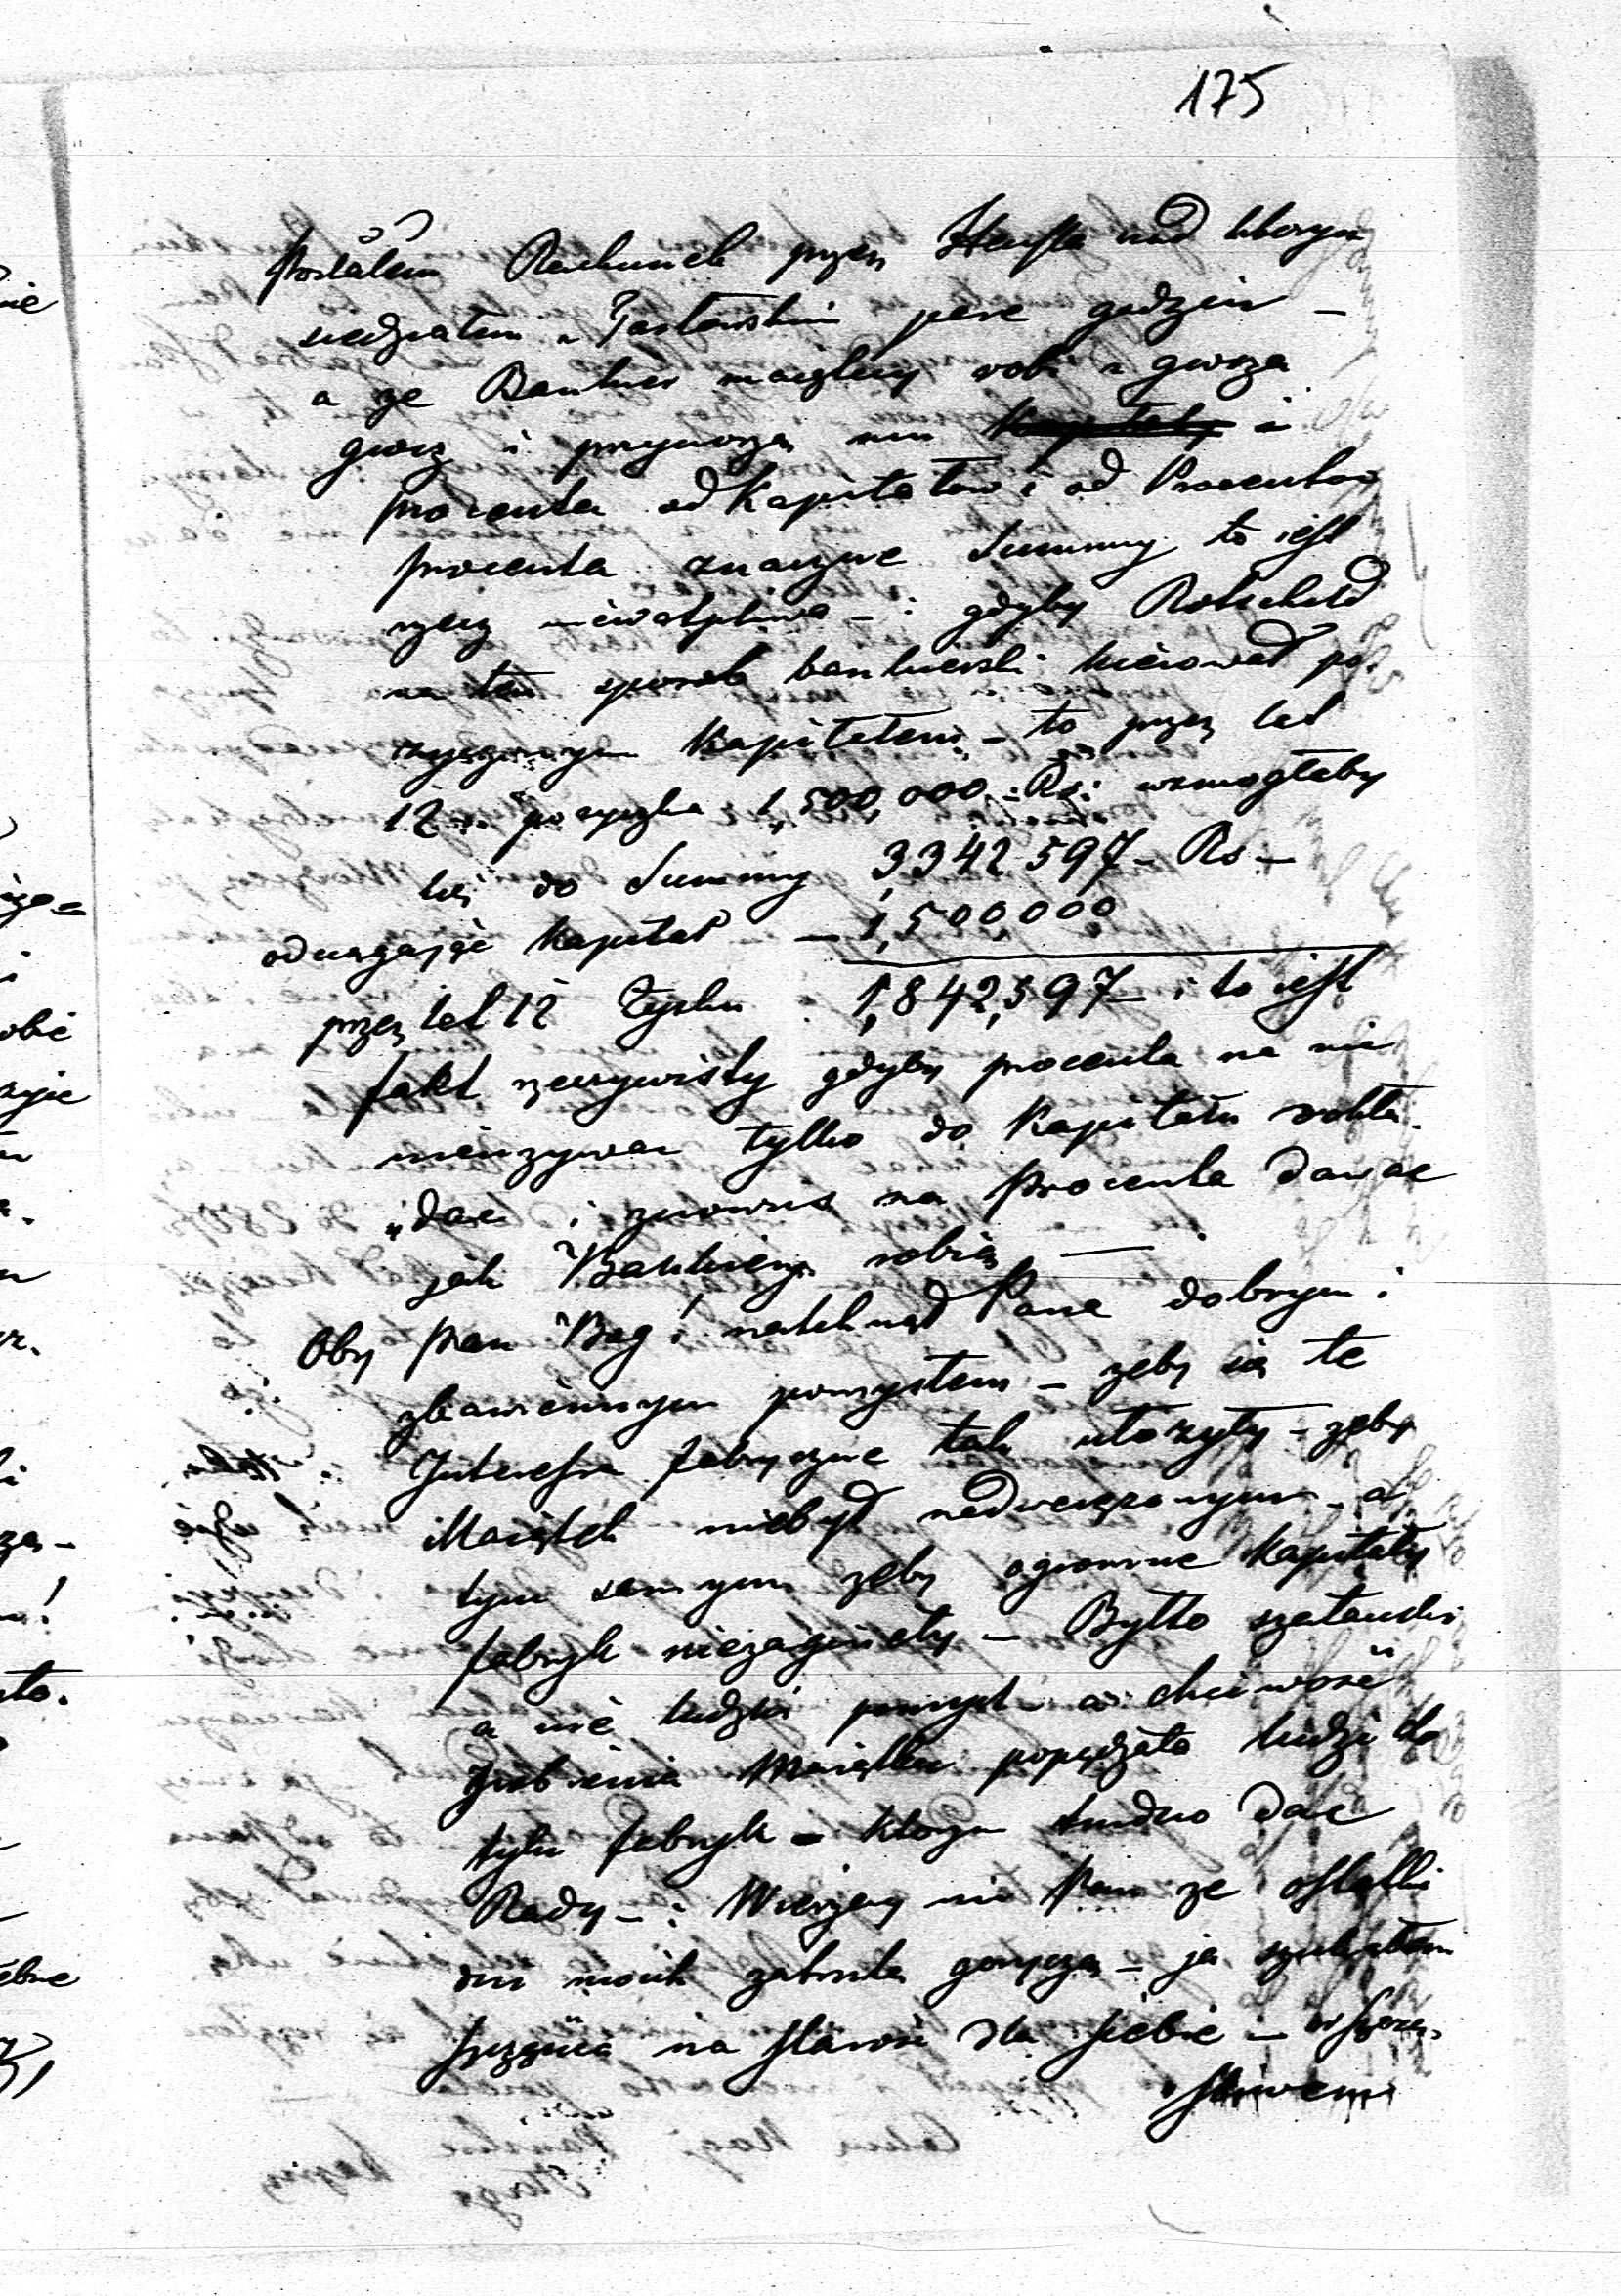 175
Posłałem Rachunek przez Hempla nad ktorym
siedziałem z Pasławskim pare godzin –
a ze Bankier robi z grosza
grosz i przynoszą mu i
procenta od Kapitałow i od Procentow
procenta znaczne Summy to iest
rzecz niewątpliwa – i gdyby Rotschild
na ten sposob bankierski kierował po-
zyczonym Kapitałem – to przez lat
12 pozyczka 1,500,000 Rs: wzmogłaby
się do Summy 3342597 – Rs –
odciągając Kapitał – 1,500,000
przez lat 12 Zysku 1,842,597 – i to iest
fakt rzeczywisty gdyby procenta na nic
nieuzywać tylko do Kapitału wkła-
„dać i znowu na procenta dawać
jak Bankierzy robią —
Oby Pan Bog! natchnął Pana dobrym i
zbawiennym pomysłem – zeby się te
Interessa fabryczne tak ułozyły – zeby
Maiątek niebył nadweręzonym – a
tym samym zeby ogromne Kapitały
fabryk niezaginęły – Był to szatanski
a nie ludzki pomysł a chciwość
Zrobienia Maiątku popędzała ludzi do
tylu fabryk – ktorym trudno dać
Rady – i Wierzay mi Pan ze ostatki
dni moich zatruła goryczą – ja szukałem
szczęścia na starość dla siebie –